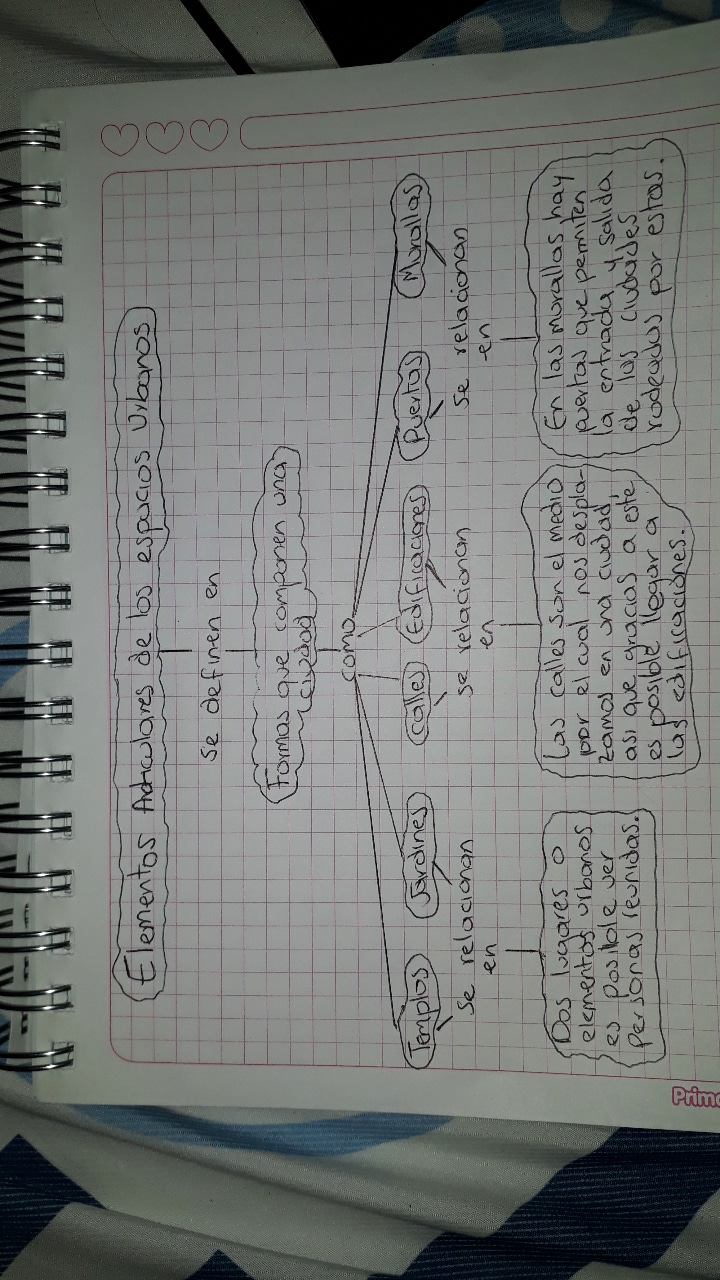 Elementos Articulares de los espacios Urbanos
se definen en
Formas que componen una
ciudad
como
Templos
Jardines
calles
Edificaciones
Puertas
Murallas
se relacionan
en
se relacionan
en
se relacionan
en
Dos lugares o
elementos urbanos
es posible ver
Personas reunidas.
Las calles son el medio
por el cual nos despla-
zamos en una ciudad,
asi que gracias a este
es posible llegar a
las edificaciones.
En las murallas hay
puertas que permiten
la entrada y salida
de las ciudades
rodeadas por estas.